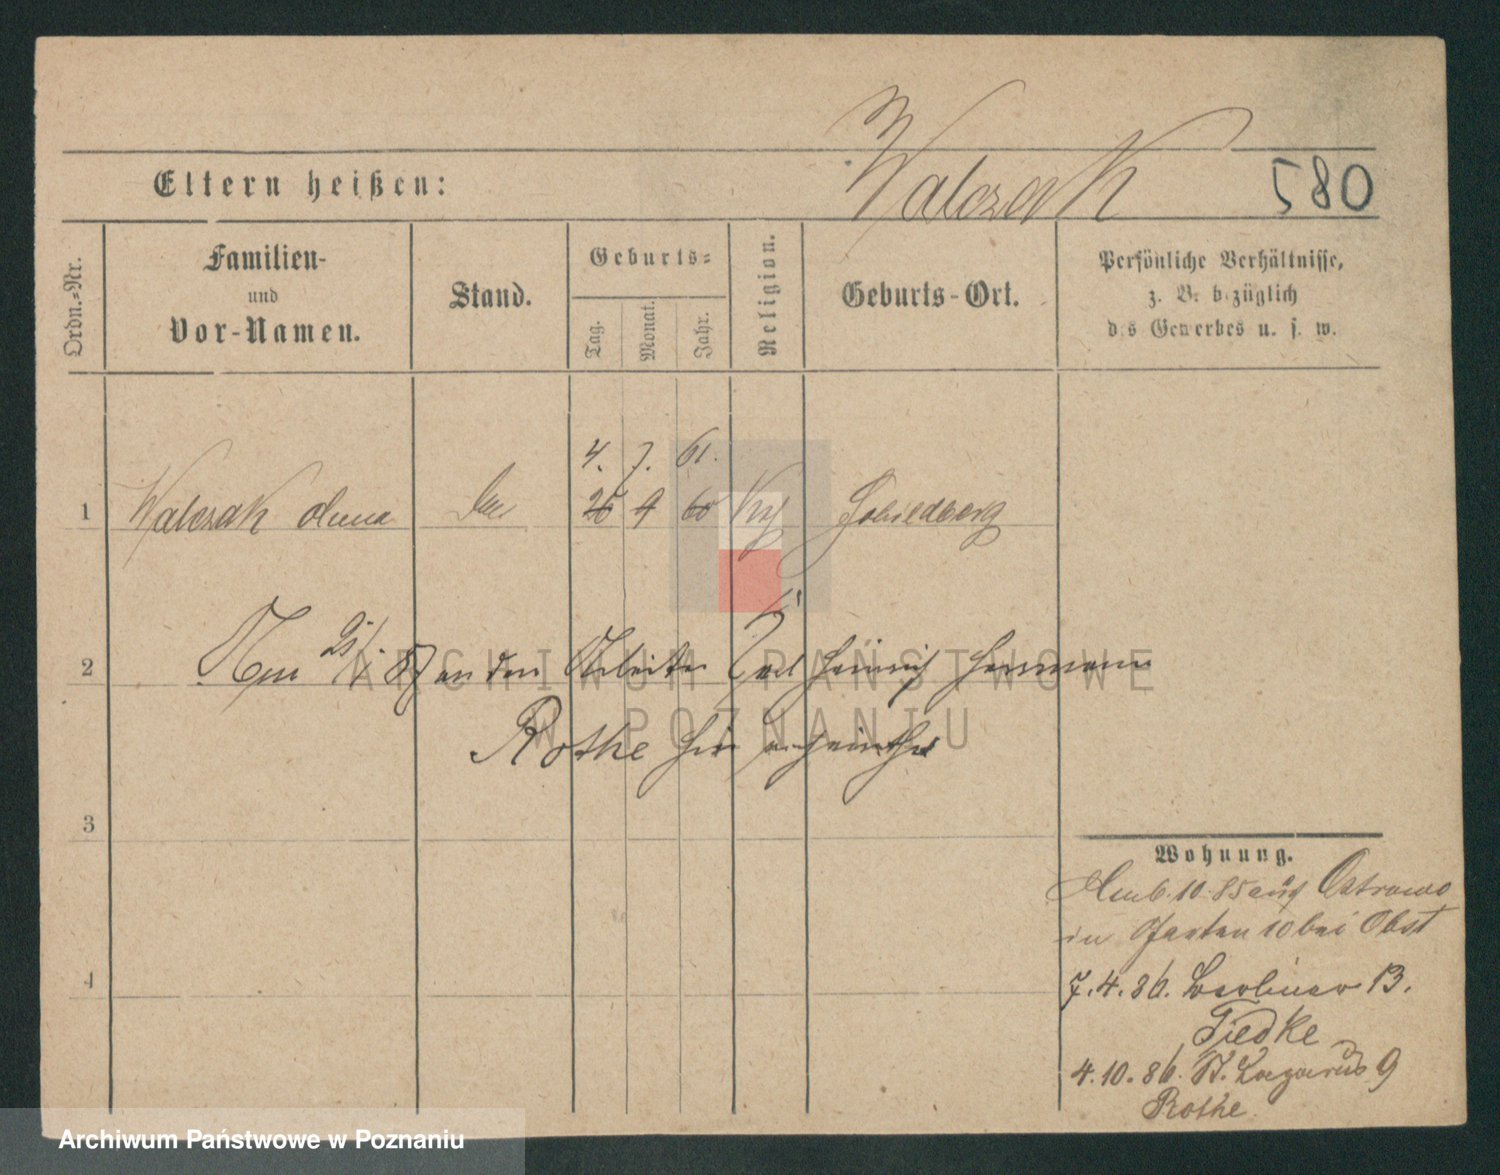 Walczak
Eltern heißen:
580
Ordn.-Nr.
Familien-
und
Vor-Namen.
Stand.
Geburts-
Tag.
Monat.
Jahr.
Religion.
Geburts-Ort.
Persönliche Verhältnisse,
z. B. bezüglich
des Gewerbes u. s. w.
4. 7. 61.
1 Walczak Anna 26 9 60 Schildberg
2 Am 25/1 87 an den Arbeiter Carl Heinrich Hermann
Rothe hier verheirathet
3
4
Wohnung.
10. 85 aus Ostrowo
in Garten 10 bei Obst
7. 4. 86. Berliner 13.
Tiedke
4. 10. 86. St. Lazarus 9
Rothe
ARCHIWUM PAŃSTWOWE
W POZNANIU
Archiwum Państwowe w Poznaniu